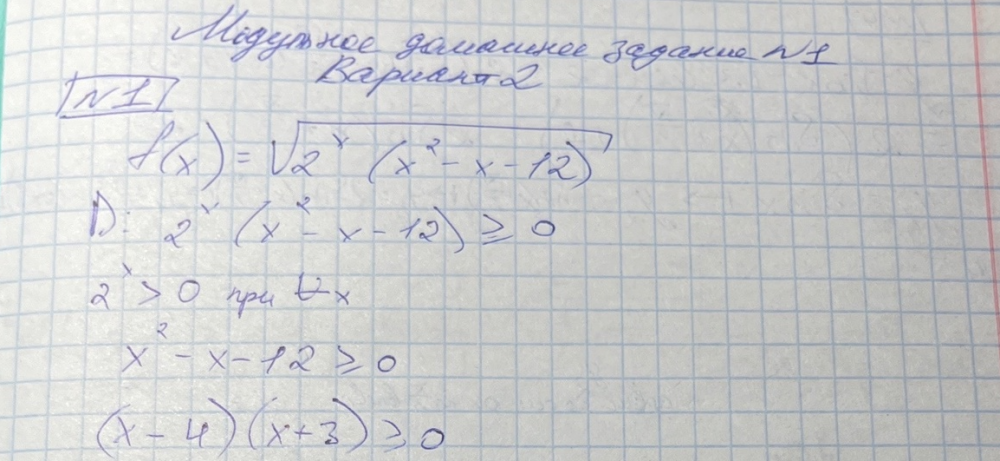 Модульное домашнее задание №1
Вариант 2
№1
f(x) = √(2^x (x² - x - 12))
D: 2^x (x² - x - 12) ≥ 0
2^x > 0 при ∀x
x² - x - 12 ≥ 0
(x - 4)(x + 3) ≥ 0